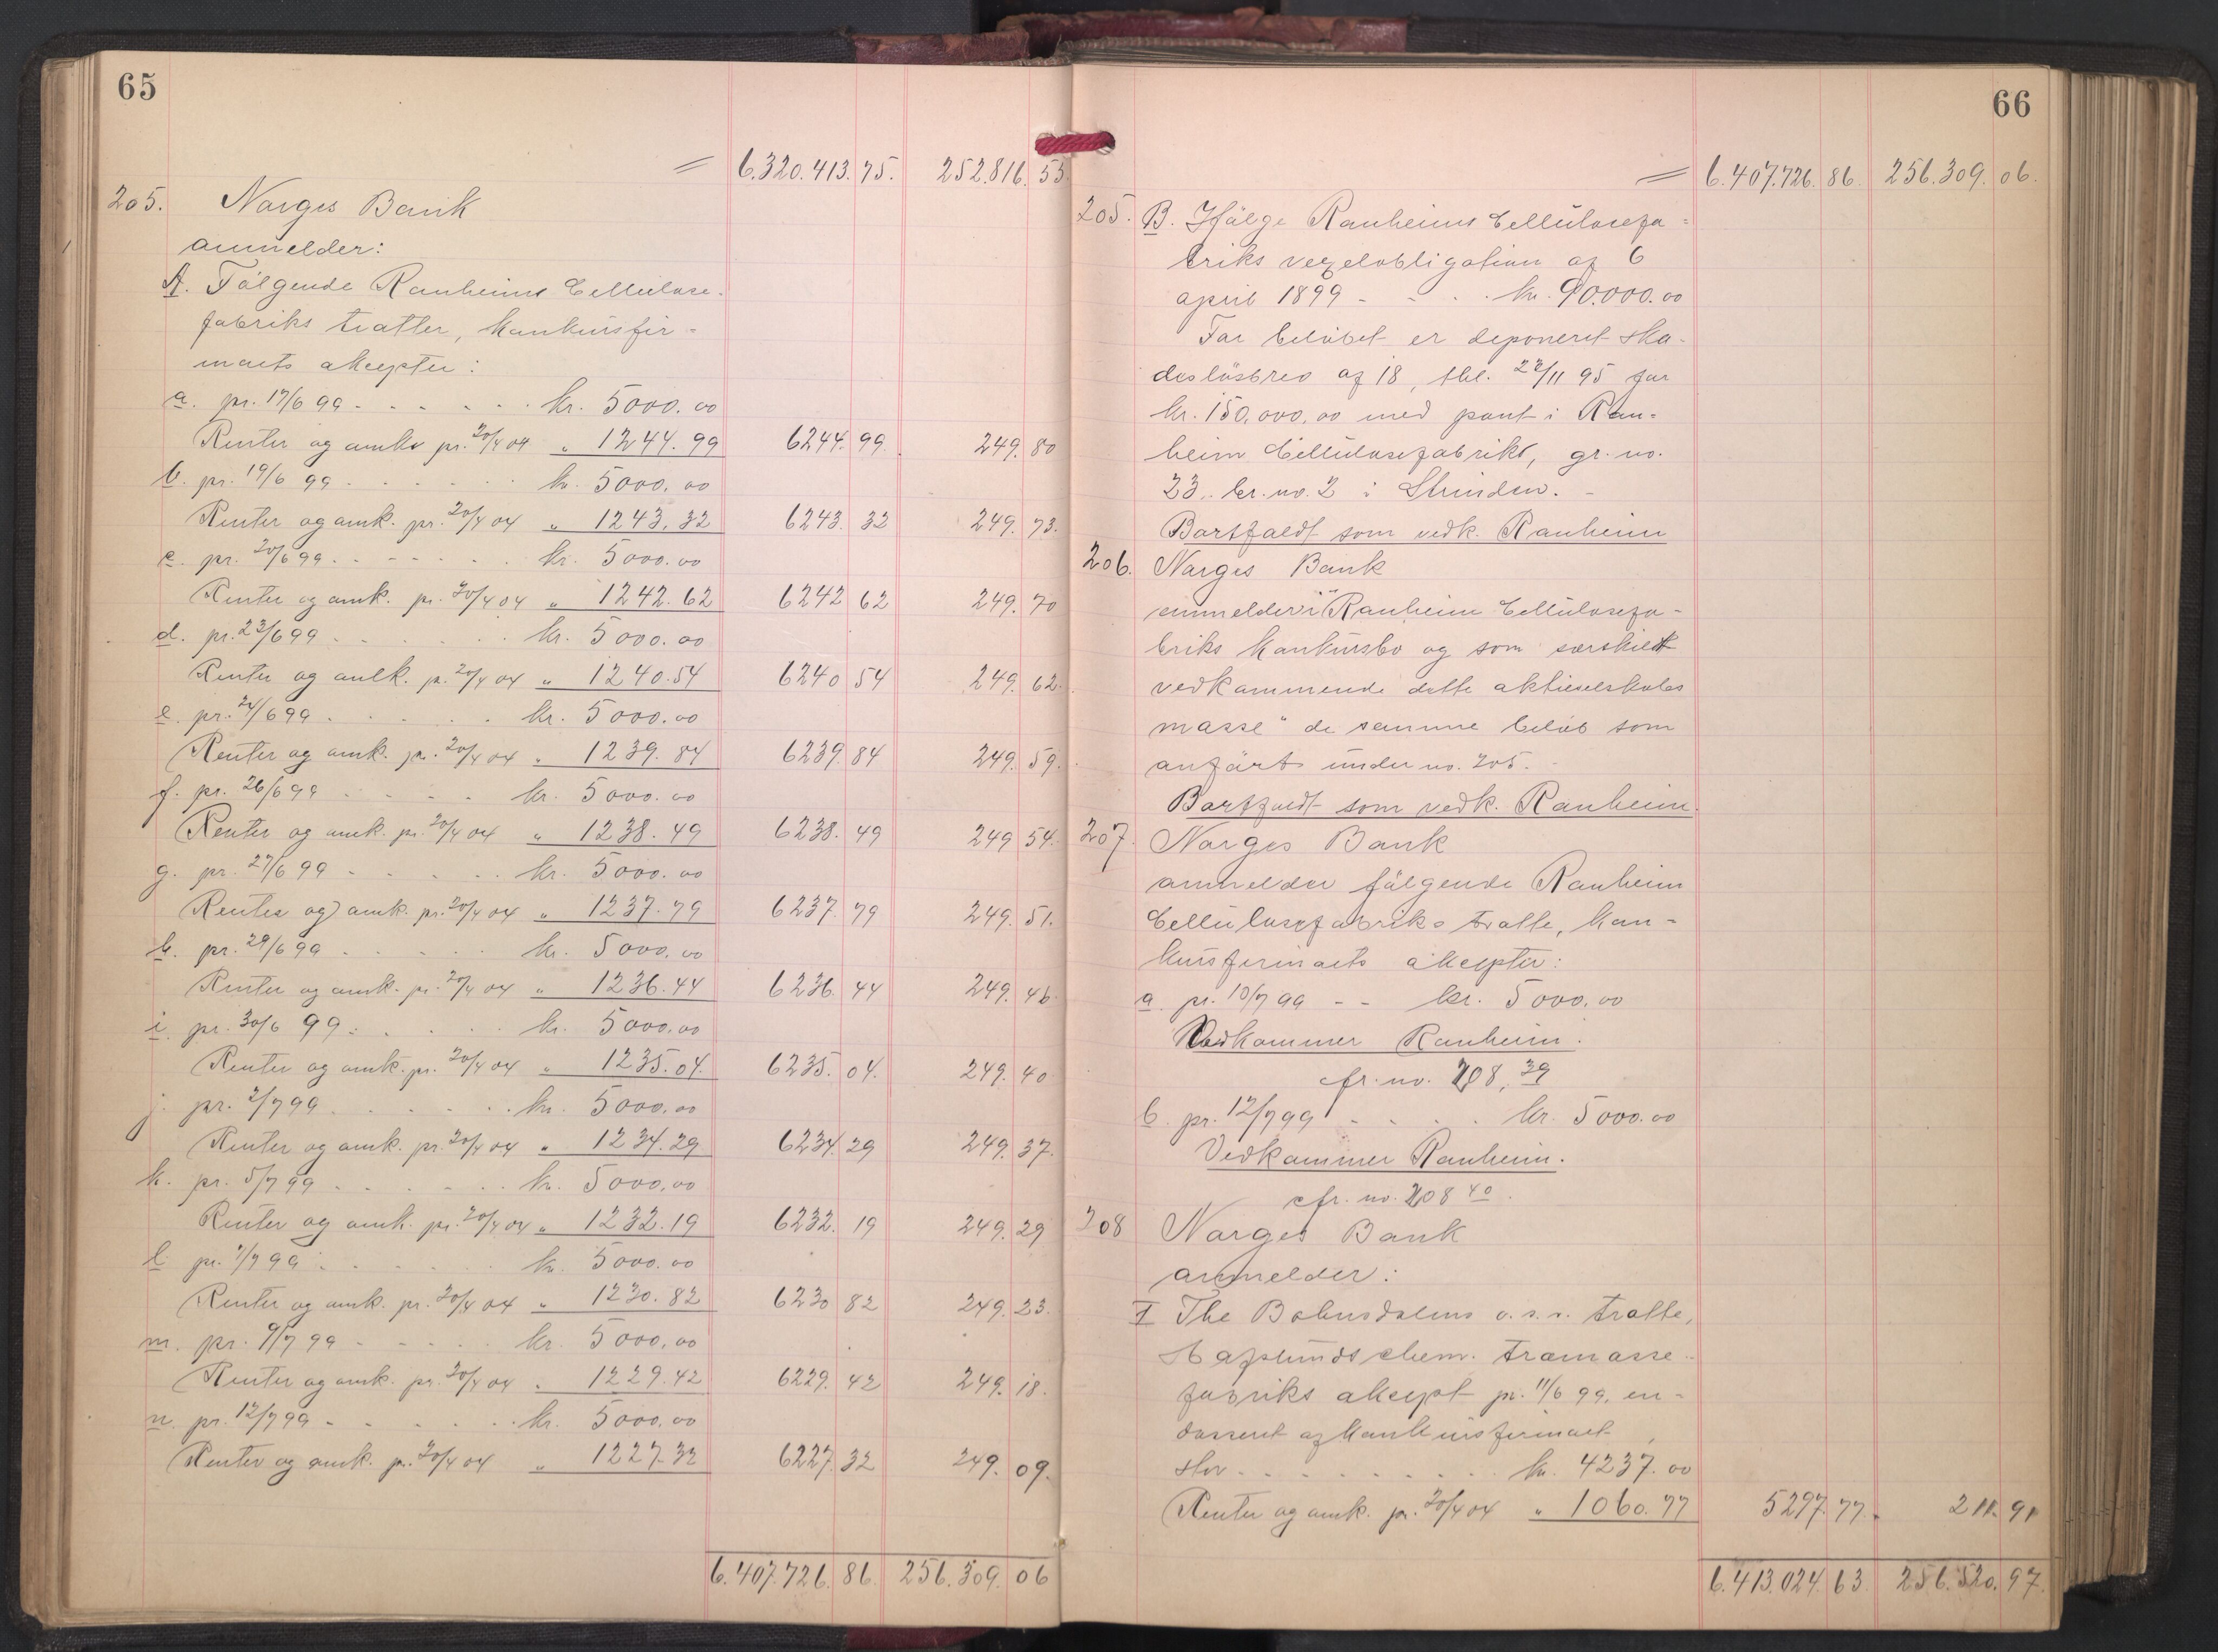 65
= 6.320.413.75. 252.816.53.
205. Norges Bank
anmelder:
A. Følgende Ranheims Cellulose-
fabriks tratter, konkursfir-
maets aksepter:
a. pr. 17/6 99 - - - - - - kr. 5000.00
Renter og omk. pr. 20/4 04 " 1244.99 6244.99. 249.80
b. pr. 19/6 99 - - - - - - kr. 5000.00
Renter og omk. pr. 20/4 04 " 1243.32 6243.32 249.73.
c. pr. 20/6 99 - - - - - - kr. 5000.00
Renter og omk. pr. 20/4 04 " 1242.62 6242 62 249.70
d. pr. 23/6 99 - - - - - - kr. 5000.00
Renter og omk. pr. 20/4 04 " 1240.54 6240 54 249.62.
e. pr. 24/6 99 - - - - - - kr. 5000.00
Renter og omk. pr. 20/4 04 " 1239.84 6239.84 249.59.
f. pr. 26/6 99 - - - - - kr. 5000.00
Renter og omk. pr. 20/4 04 " 1238.49 6238.49 249 54.
g. pr. 27/6 99 - - - - - - kr. 5000.00
Renter og omk. pr. 20/4 04 " 1237.79 6237.79 249.51.
h. pr. 29/6 99 - - - - - kr. 5000.00
Renter og omk. pr. 20/4 04 " 1236.44 6236.44 249.46.
i. pr. 30/6 99 - - - - - kr. 5000.00
Renter og omk. pr. 20/4 04 " 1235.04. 6235.04. 249.40
j. pr. 2/7 99 - - - - - - kr. 5000.00
Renter og omk. pr. 20/4 04 " 1234.29 6234.29 249.37.
k. pr. 5/7 99 - - - - - - kr. 5000.00
Renter og omk. pr. 20/4 04 " 1232.19 6232.19 249.29
l. pr. 7/7 99 - - - - - - kr. 5000.00
Renter og omk. pr. 20/4 04 " 1230.82 6230 82 249.23.
m. pr. 9/7 99 - - - - - kr. 5000.00
Renter og omk. pr. 20/4 04 " 1229.42 6229.42 249.18.
n. pr. 12/7 99 - - - - - - kr. 5000.00
Renter og omk. pr. 20/4 04 " 1227.32 6227.32 249.09.
6.407.726.86. 256.309.06
66
= 6.407.726.86. 256.309.06.
205. B. Ifølge Ranheims Cellulosefa-
briks vexelobligation af 6
april 1899 - - - - kr. 90.000.00
For beløbet er deponeret ska-
desløsbrev af 18, tbl. 22/11 95 for
kr. 150.000,00 med pant i Ran-
heim Cellulosefabrik, gr. no.
23. br. no. 2 i Strinden. -
Bortfaldt som vedk. Ranheim
206. Norges Bank
anmelder i "Ranheim Cellulosefa-
briks konkursbo og som særskilt
vedkommende dette aktieselskabs
masse" de samme beløb som
anført under no. 205. -
Bortfaldt som vedk. Ranheim.
207. Norges Bank
anmelder følgende Ranheim
Cellulosefabriks tratte, kon-
kursfirmaets aksepter:
a. pr. 10/7 99 - - kr. 5000.00
Vedkommer Ranheim.
cfr. no. 208, 39
b. pr. 12/7 99 - - - - kr. 5000.00
Vedkommer Ranheim.
cfr. no. 208 40.
208 Norges Bank
anmelder:
I The Bohnsdalens o. s. v. tratte,
Hafslunds chem. træmasse-
fabriks aksept pr. 11/6 99, en-
dosseret af konkursfirmaet,
stor - - - - - - - - - kr. 4237.00
Renter og omk. pr. 20/4 04 " 1060.77 5297.77. 211.91
6.413.024.63 256.520.97.